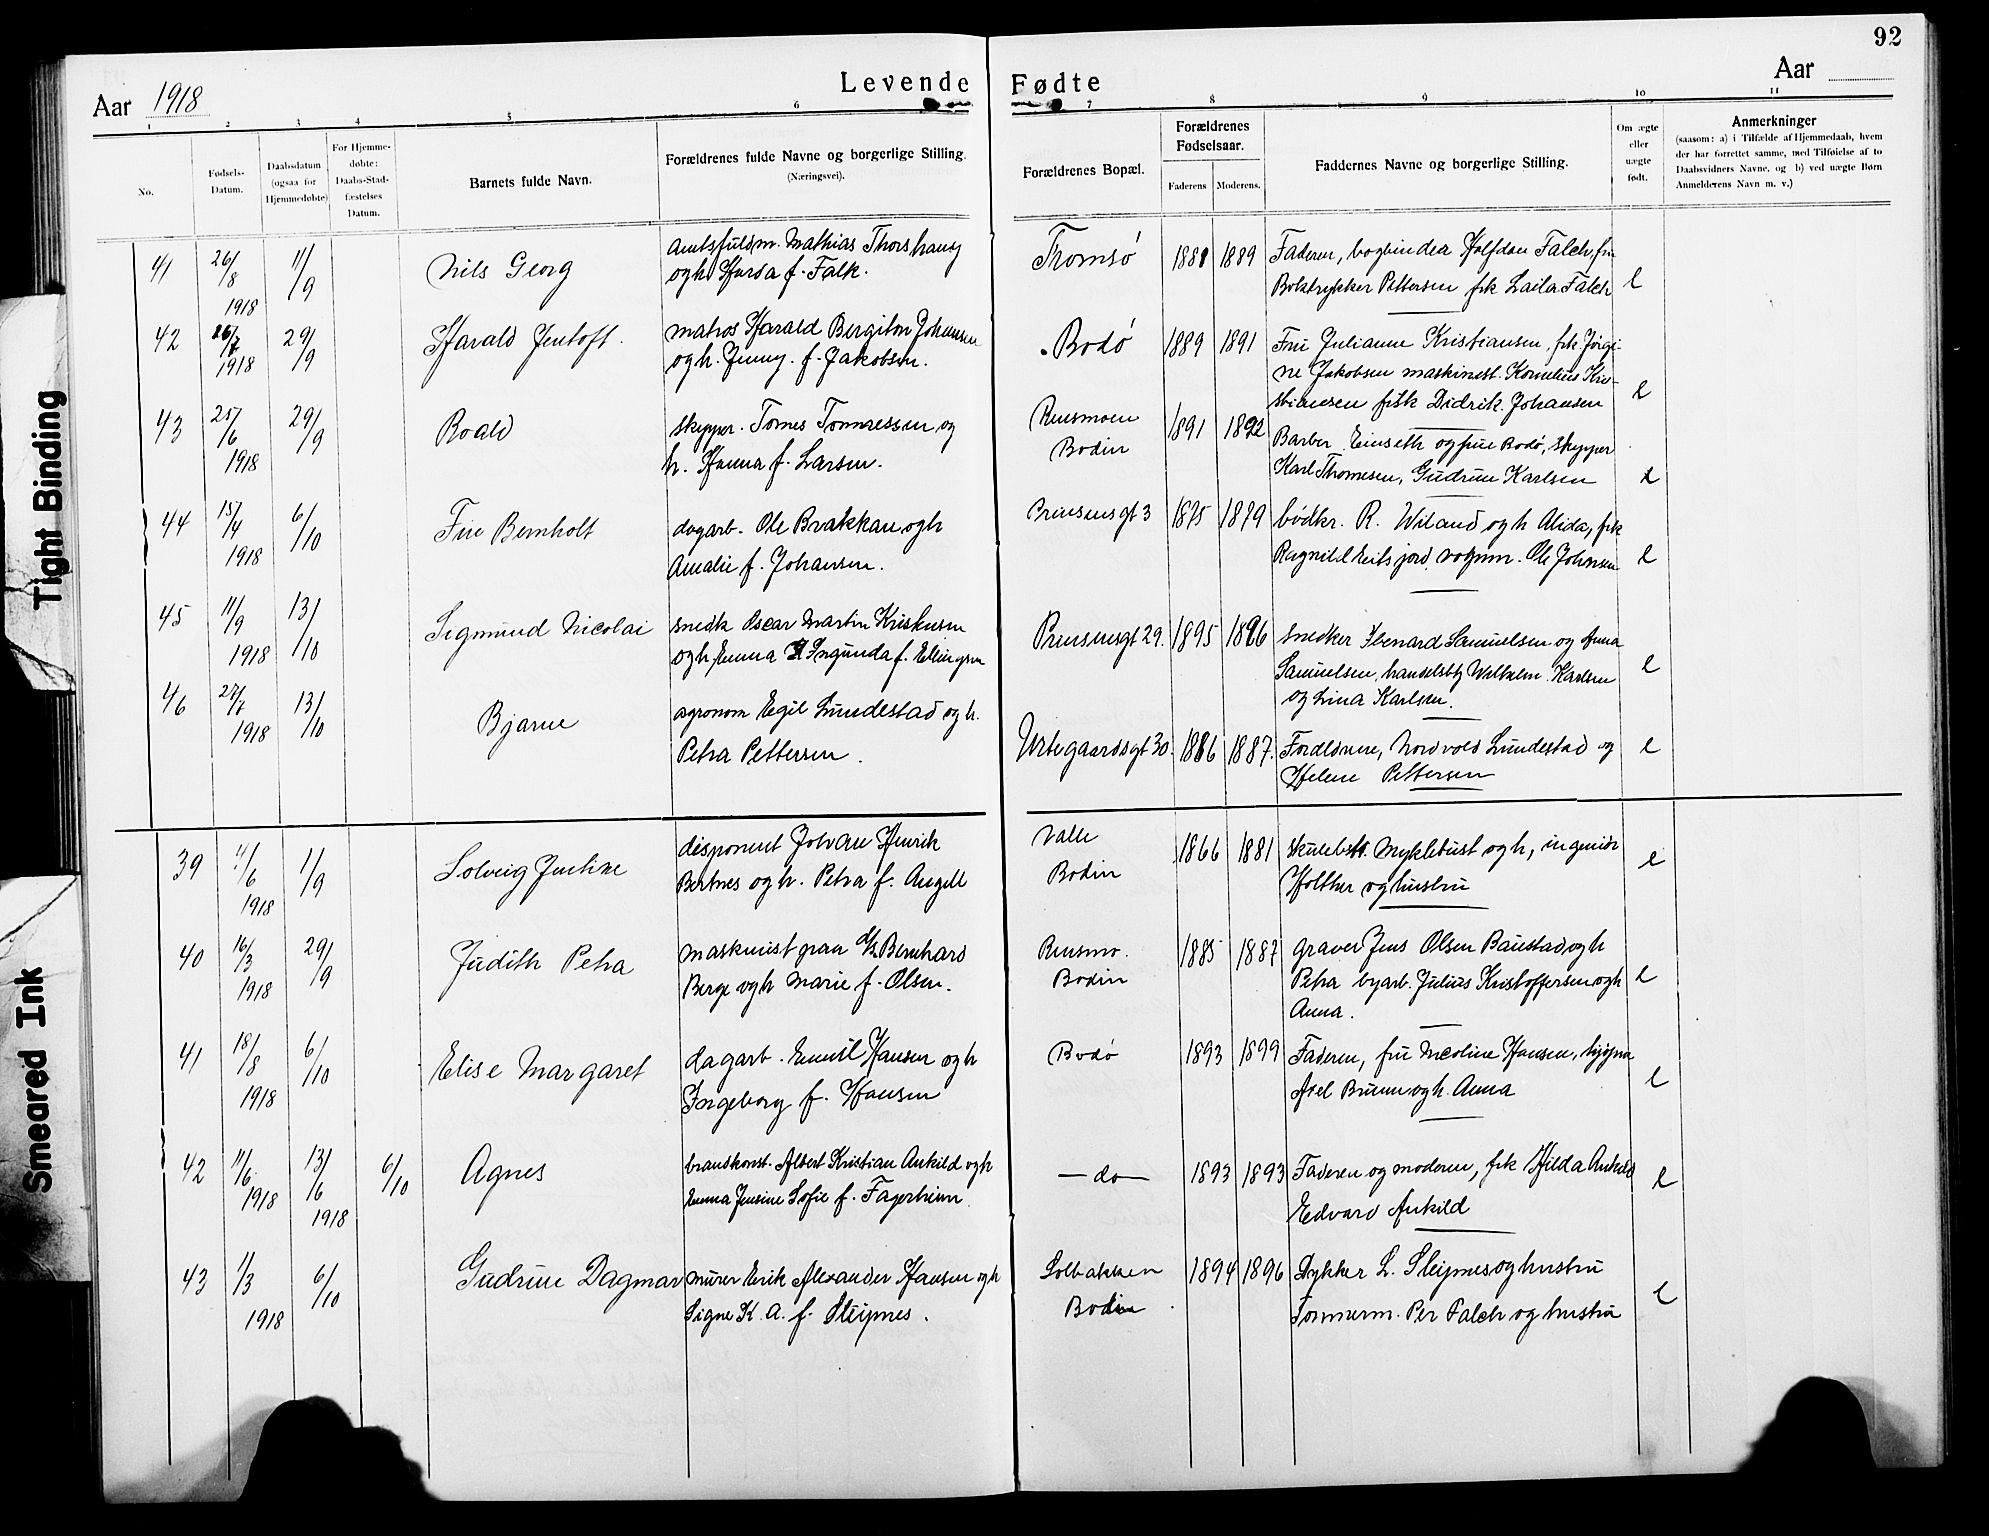 92
Levende Fødte
Aar 1918
Aar
1 2 3 4 5 6 7 8 9 10 11
No.
Fødsels-
Datum.
Daabsdatum
(ogsaa for
Hjemmedøbte)
For Hjemme-
døbte:
Daabs-Stad-
fæstelses
Datum.
Barnets fulde Navn.
Forældrenes fulde Navne og borgerlige Stilling.
(Næringsvei).
Forældrenes Bopæl.
Forældrenes
Fødselsaar.
Faderens Moderens.
Faddernes Navne og borgerlige Stilling.
Om ægte
eller
uægte
født.
Anmerkninger
(saasom: a) i Tilfælde af Hjemmedaab, hvem
der har forrettet samme, med Tilføielse af to
Daabsvidners Navne, og b) ved uægte Børn
Anmelderens Navn m. v.)
41 26/8 1918 11/9 Nils Georg
Amtsfuldm. Mathias Thorshaug
og h. f. Falk.
Tromsø 1881 1889
Faderen, bogbinder Halfdan Falch, fru
Boktrykker Pettersen frk Laila Falch
e
42 26/7 1918 29/9 Harald Jentoft.
matros Harald Bergiton Johansen
og h. Jenny. f. Jakobsen.
Bodø 1889 1891
Fru Julianne Kristiansen, frk. Jørgi-
ne Jakobsen maskinest. Kornelius Kri-
stiansen fisk Didrik Johansen
e
43 25/6 1918 29/9 Roald
skipper. Tomes Tomassen og
h. Hanna f. Larsen.
Rensmoen
Bodin
1891 1892
Barber Einseth og frue Bodø, skipper
Karl Thomesen, Gudrun Karlsen
e
44 15/4 1918 6/10 Finn Bernholt
dagarb. Ole Brakkan og h
Amalie f. Johansen.
Prinsensgt 3 1875 1879
bødkr. R. Wiland og h Alida, frk
Ragnild vognm. Ole Johansen
e
45 11/9 1918 13/10 Sigmund Nicolai
snedk Oscar Martin Kristensen
og h Emma Ingunda f. Ellingsen
Prinsensgt 29. 1895 1896
snedker Ebenard Samuelsen og Anna
Samuelsen, handelsbtj Wilhelm Karlsen
og Lina Karlsen.
e
46 27/7 1918 13/10 Bjarne
agronom Egil Lundestad og h.
Petra Pettersen.
Urtegaardsgt 30. 1886 1887.
Forældrene, Nordvold Lundestad og
Helene Pettersen
e
39 4/6 1918 1/9 Solveig Justine
disponent Johan Henrik
Bertnes og h. Petra f. Angell
Valle
Bodin
1866 1881
skulebst. Myklebust og h, ingeniør
Holther og hustru
e
40 16/3 1918 29/9 Judith Petra
maskinist paa D/S Bernhard
Berge og h Marie f. Olsen.
Rensmo.
Bodin
1885 1887
graver Jens Olsen Baustad og h
Petra byarb. Julius Kristoffersen og h
Anna.
e
41 18/8 1918 6/10 Elise Margaret
dagarb. Emil Hansen og h
Ingeborg f. Hansen
Bodø 1893 1899
Faderen, fru Nicoline Hansen,
Axel Bruun og h. Anna
e
42 11/6 1918 13/6 1918 6/10 Agnes
brandkonst. Albert Kristian Ankild og h
Emma Jensine Sofie f. Fagerheim
— do — 1893 1893
Faderen og moderen, frk Hilda Ankild
Edvard Ankild
e
43 1/3 1918 6/10 Gudrun Dagmar
murer Erik Alexander Hansen og h
Signe K. A. f. Sleipnes.
Solbakken
Bodin.
1894 1896
Dykker L. Sleipnes og hustru
Tømmerm. Per Falch og hustru
e
Tight Binding
Smeared Ink